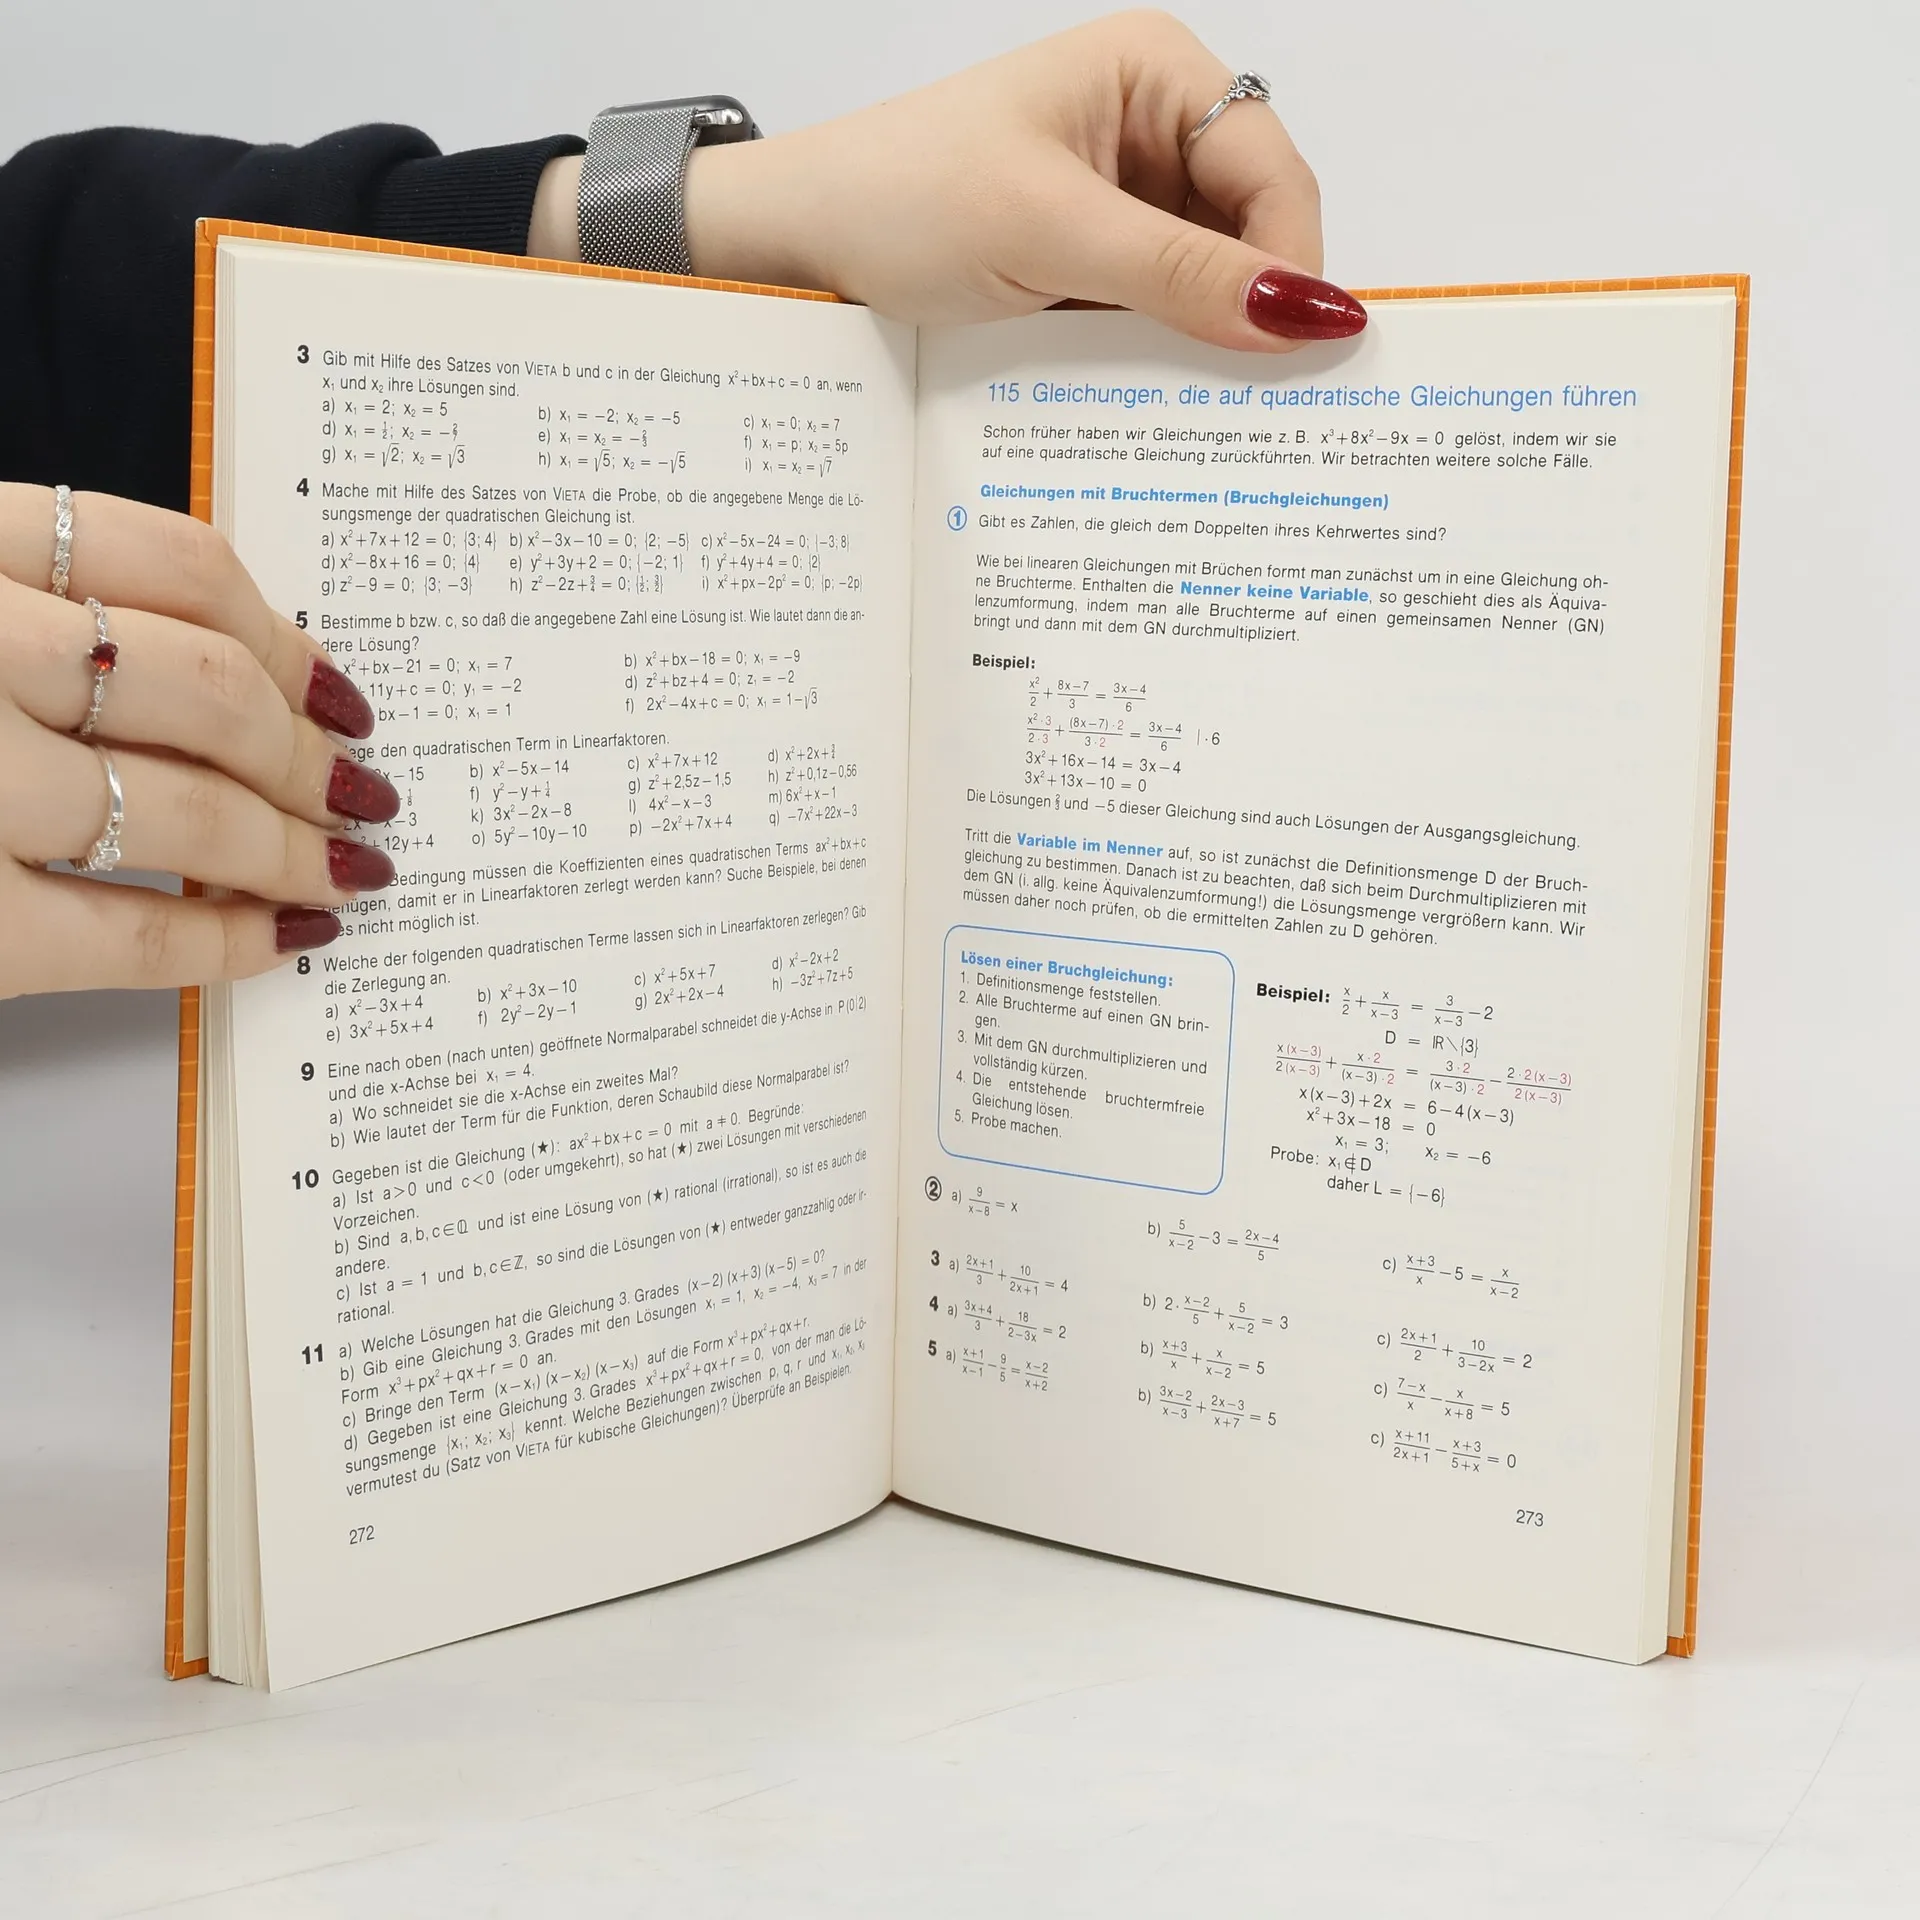 3 Gib mit Hilfe des Satzes von VIETA b und c in der Gleichung x²+bx+c = 0 an, wenn
x₁ und x₂ ihre Lösungen sind.
a) x₁ = 2; x₂ = 5 b) x₁ = −2; x₂ = −5 c) x₁ = 0; x₂ = 7
d) x₁ = ½; x₂ = −2/7 e) x₁ = x₂ = −2/3 f) x₁ = p; x₂ = 5p
g) x₁ = √2; x₂ = √3 h) x₁ = √5; x₂ = −√5 i) x₁ = x₂ = √7
4 Mache mit Hilfe des Satzes von VIETA die Probe, ob die angegebene Menge die Lö-
sungsmenge der quadratischen Gleichung ist.
a) x²+7x+12 = 0; {3; 4} b) x²−3x−10 = 0; {2; −5} c) x²−5x−24 = 0; {−3; 8}
d) x²−8x+16 = 0; {4} e) y²+3y+2 = 0; {−2; 1} f) y²+4y+4 = 0; {2}
g) z²−9 = 0; {3; −3} h) z²−2z+¾ = 0; {½; 3/2} i) x²+px−2p² = 0; {p; −2p}
5 Bestimme b bzw. c, so daß die angegebene Zahl eine Lösung ist. Wie lautet dann die an-
dere Lösung?
x²+bx−21 = 0; x₁ = 7 b) x²+bx−18 = 0; x₁ = −9
11y+c = 0; y₁ = −2 d) z²+bz+4 = 0; z₁ = −2
bx−1 = 0; x₁ = 1 f) 2x²−4x+c = 0; x₁ = 1−√3
den quadratischen Term in Linearfaktoren.
x−15 b) x²−5x−14 c) x²+7x+12 d) x²+2x+¾
f) y²−y+¼ g) z²+2,5z−1,5 h) z²+0,1z−0,56
x−3 k) 3x²−2x−8 l) 4x²−x−3 m) 6x²+x−1
12y+4 o) 5y²−10y−10 p) −2x²+7x+4 q) −7x²+22x−3
Bedingung müssen die Koeffizienten eines quadratischen Terms ax²+bx+c
genügen, damit er in Linearfaktoren zerlegt werden kann? Suche Beispiele, bei denen
es nicht möglich ist.
8 Welche der folgenden quadratischen Terme lassen sich in Linearfaktoren zerlegen? Gib
die Zerlegung an.
a) x²−3x+4 b) x²+3x−10 c) x²+5x+7 d) x²−2x+2
e) 3x²+5x+4 f) 2y²−2y−1 g) 2x²+2x−4 h) −3z²+7z+5
9 Eine nach oben (nach unten) geöffnete Normalparabel schneidet die y-Achse in P(0|2)
und die x-Achse bei x₁ = 4.
a) Wo schneidet sie die x-Achse ein zweites Mal?
b) Wie lautet der Term für die Funktion, deren Schaubild diese Normalparabel ist?
10 Gegeben ist die Gleichung (★): ax²+bx+c = 0 mit a ≠ 0. Begründe:
a) Ist a>0 und c<0 (oder umgekehrt), so hat (★) zwei Lösungen mit verschiedenen
Vorzeichen.
b) Sind a, b, c∈ℚ und ist eine Lösung von (★) rational (irrational), so ist es auch die
andere.
c) Ist a = 1 und b, c∈ℤ, so sind die Lösungen von (★) entweder ganzzahlig oder ir-
rational.
11 a) Welche Lösungen hat die Gleichung 3. Grades (x−2)(x+3)(x−5) = 0?
b) Gib eine Gleichung 3. Grades mit den Lösungen x₁ = 1, x₂ = −4, x₃ = 7 in der
Form x³+px²+qx+r = 0 an.
c) Bringe den Term (x−x₁)(x−x₂)(x−x₃) auf die Form x³+px²+qx+r.
d) Gegeben ist eine Gleichung 3. Grades x³+px²+qx+r = 0, von der man die Lö-
sungsmenge {x₁; x₂; x₃} kennt. Welche Beziehungen zwischen p, q, r und x₁, x₂, x₃
vermutest du (Satz von VIETA für kubische Gleichungen)? Überprüfe an Beispielen.
272
115 Gleichungen, die auf quadratische Gleichungen führen
Schon früher haben wir Gleichungen wie z. B. x³+8x²−9x = 0 gelöst, indem wir sie
auf eine quadratische Gleichung zurückführten. Wir betrachten weitere solche Fälle.
Gleichungen mit Bruchtermen (Bruchgleichungen)
① Gibt es Zahlen, die gleich dem Doppelten ihres Kehrwertes sind?
Wie bei linearen Gleichungen mit Brüchen formt man zunächst um in eine Gleichung oh-
ne Bruchterme. Enthalten die Nenner keine Variable, so geschieht dies als Äquiva-
lenzumformung, indem man alle Bruchterme auf einen gemeinsamen Nenner (GN)
bringt und dann mit dem GN durchmultipliziert.
Beispiel:
x²/2 + (8x−7)/3 = (3x−4)/6
(x²·3)/(2·3) + ((8x−7)·2)/(3·2) = (3x−4)/6 |·6
3x²+16x−14 = 3x−4
3x²+13x−10 = 0
Die Lösungen ⅔ und −5 dieser Gleichung sind auch Lösungen der Ausgangsgleichung.
Tritt die Variable im Nenner auf, so ist zunächst die Definitionsmenge D der Bruch-
gleichung zu bestimmen. Danach ist zu beachten, daß sich beim Durchmultiplizieren mit
dem GN (i. allg. keine Äquivalenzumformung!) die Lösungsmenge vergrößern kann. Wir
müssen daher noch prüfen, ob die ermittelten Zahlen zu D gehören.
Lösen einer Bruchgleichung:
1. Definitionsmenge feststellen.
2. Alle Bruchterme auf einen GN brin-
gen.
3. Mit dem GN durchmultiplizieren und
vollständig kürzen.
4. Die entstehende bruchtermfreie
Gleichung lösen.
5. Probe machen.
Beispiel: x/2 + x/(x−3) = 3/(x−3) − 2
D = ℝ∖{3}
x(x−3)/2(x−3) + (x·2)/((x−3)·2) = (3·2)/((x−3)·2) − 2·2(x−3)/2(x−3)
x(x−3)+2x = 6−4(x−3)
x²+3x−18 = 0
x₁ = 3; x₂ = −6
Probe: x₁∉D
daher L = {−6}
② a) 9/(x−8) = x b) 5/(x−2) − 3 = (2x−4)/5 c) (x+3)/x − 5 = x/(x−2)
3 a) (2x+1)/3 + 10/(2x+1) = 4 b) 2·(x−2)/5 + 5/(x−2) = 3 c) (2x+1)/2 + 10/(3−2x) = 2
4 a) (3x+4)/3 + 18/(2−3x) = 2 b) (x+3)/x + x/(x−2) = 5 c) (7−x)/x − x/(x+8) = 5
5 a) (x+1)/(x−1) − 9/5 = (x−2)/(x+2) b) (3x−2)/(x−3) + (2x−3)/(x+7) = 5 c) (x+11)/(2x+1) − (x+3)/(5+x) = 0
273